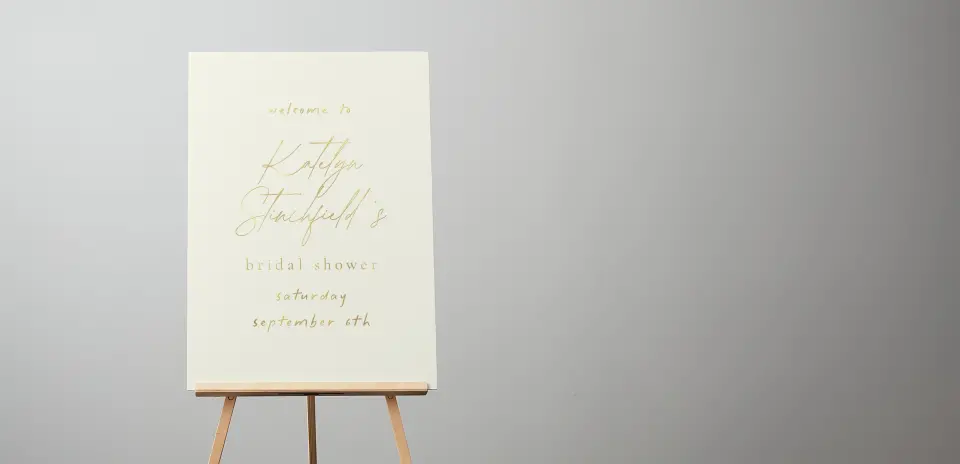 welcome to
Katelyn
Stinchfield's
bridal shower
saturday
september 6th